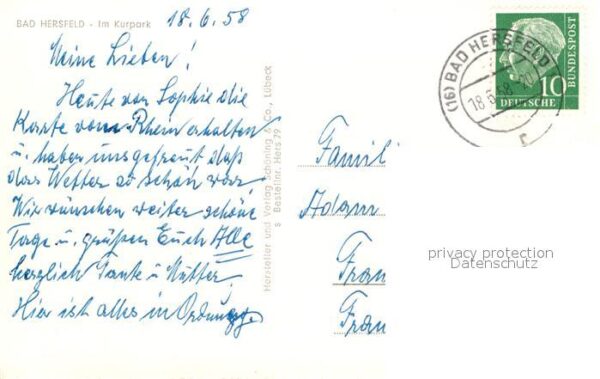 BAD HERSFELD - Im Kurpark
18.6.58
Meine Lieben!
Heute von Sophie die
Karte vom Rhein erhalten
u. haben uns gefreut daß
das Wetter so schön war.
Wir wünschen weiter schöne
Tage u. grüßen Euch Alle
herzlich Tante u. Mutter.
Hier ist alles in Ordnung
Hersteller und Verlag Schöning & Co., Lübeck
S Bestellnr. Hers 79
(16) BAD HERSFELD
18.6.58
DEUTSCHE BUNDESPOST
10
Famili
Adam
Fran
Fran
privacy protection
Datenschutz